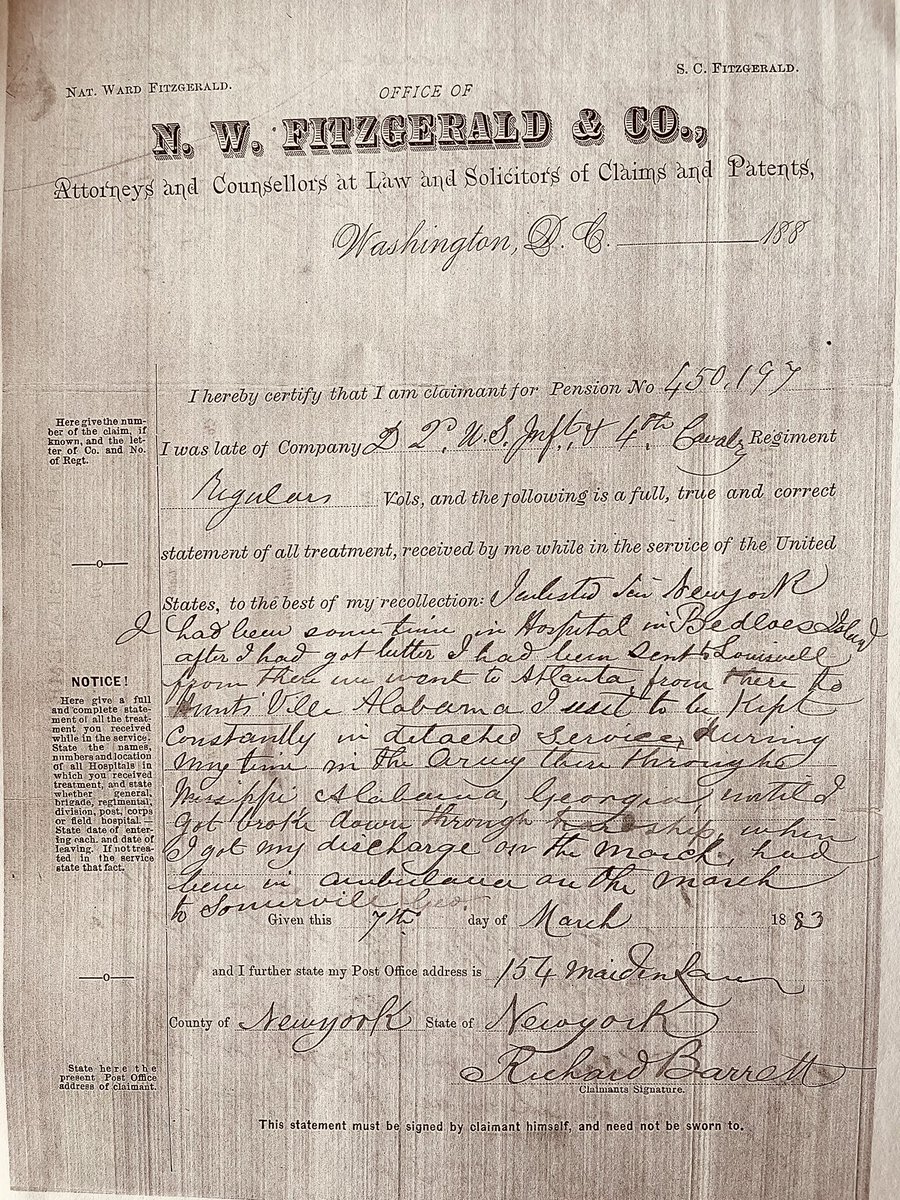 NAT. WARD FITZGERALD.
S. C. FITZGERALD.
OFFICE OF
N. W. FITZGERALD & CO.,
Attorneys and Counsellors at Law and Solicitors of Claims and Patents,
Washington, D. C. 188
I hereby certify that I am claimant for Pension No 450,197
Here give the num-
ber of the claim, if
known, and the let-
ter of Co. and No.
of Regt.
I was late of Company D 2d, U.S. Inft, & 4th Cavaly Regiment
Regulars Vols, and the following is a full, true and correct
statement of all treatment, received by me while in the service of the United
States, to the best of my recollection: I enlested in Newyork
I had been some time in Hospital in Bedloes Island
after I had got better I had been sent to Louisvell
from there we went to Atlanta from there to
Hunts Ville Alabama I uset to be Kept
Constantly in detached service during
my time in the Army there through
Missippi Alabama, Georgia, until I
got broke down through hardship, when
I got my discharge on the march, had
been in ambulance on the march
to Somervill Geo.
NOTICE!
Here give a full
and complete state-
ment of all the treat-
ment you received
while in the service.
State the names,
numbers and location
of all Hospitals in
which you received
treatment, and state
whether general,
brigade, regimental,
division, post, corps
or field hospital.—
State date of enter-
ing each, and date of
leaving. If not trea-
ted in the service
state that fact.
Given this 7th day of March 1883
and I further state my Post Office address is 154 Maiden Lane
County of Newyork State of Newyork
State here the
present Post Office
address of claimant.
Richard Barrett
Claimants Signature.
This statement must be signed by claimant himself, and need not be sworn to.